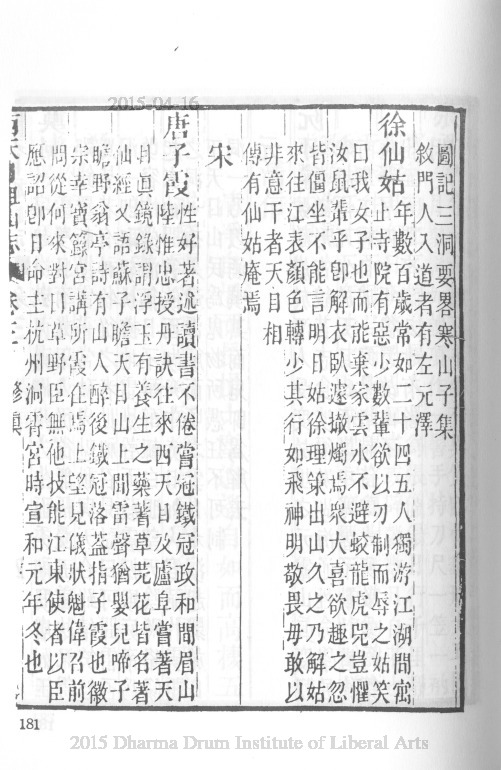 2015-04-16
圖記三洞要畧寒山子集
敘門人入道者有左元澤
徐仙姑年數百歲常如二十四五人獨游江湖間寓
止寺院有惡少數輩欲以刃制而辱之姑笑
曰我女子也而能棄家雲水不避蛟龍虎兕豈懼
汝鼠輩乎卽解衣臥遽撤燭焉衆大喜欲趣之忽
皆僵坐不能言明日姑徐理策出山久之乃解姑
來往江表顏色轉少其行如飛神明敬畏毋敢以
非意干者天目相
傳有仙姑庵焉
宋
唐子霞性好著述讀書不倦嘗冠鐵冠政和間眉山
陸惟忠授丹訣往來西天目及廬阜嘗著天
目眞鏡錄謂浮玉有養生之藥著草芫花皆名著
仙經又語蘇子瞻天目山上聞雷聲猶嬰兒啼子
瞻野翁亭詩有山人醉後鐵冠落蓋指子霞也徽
宗幸寶籙宮講所霞在焉上望見儀狀魁偉召前
問從何來對曰草野臣無他技能江東使者以臣
應詔卽日命主杭州洞霄宮時宣和元年冬也
西天目祖山志 卷三 修眞
181
2015 Dharma Drum Institute of Liberal Arts